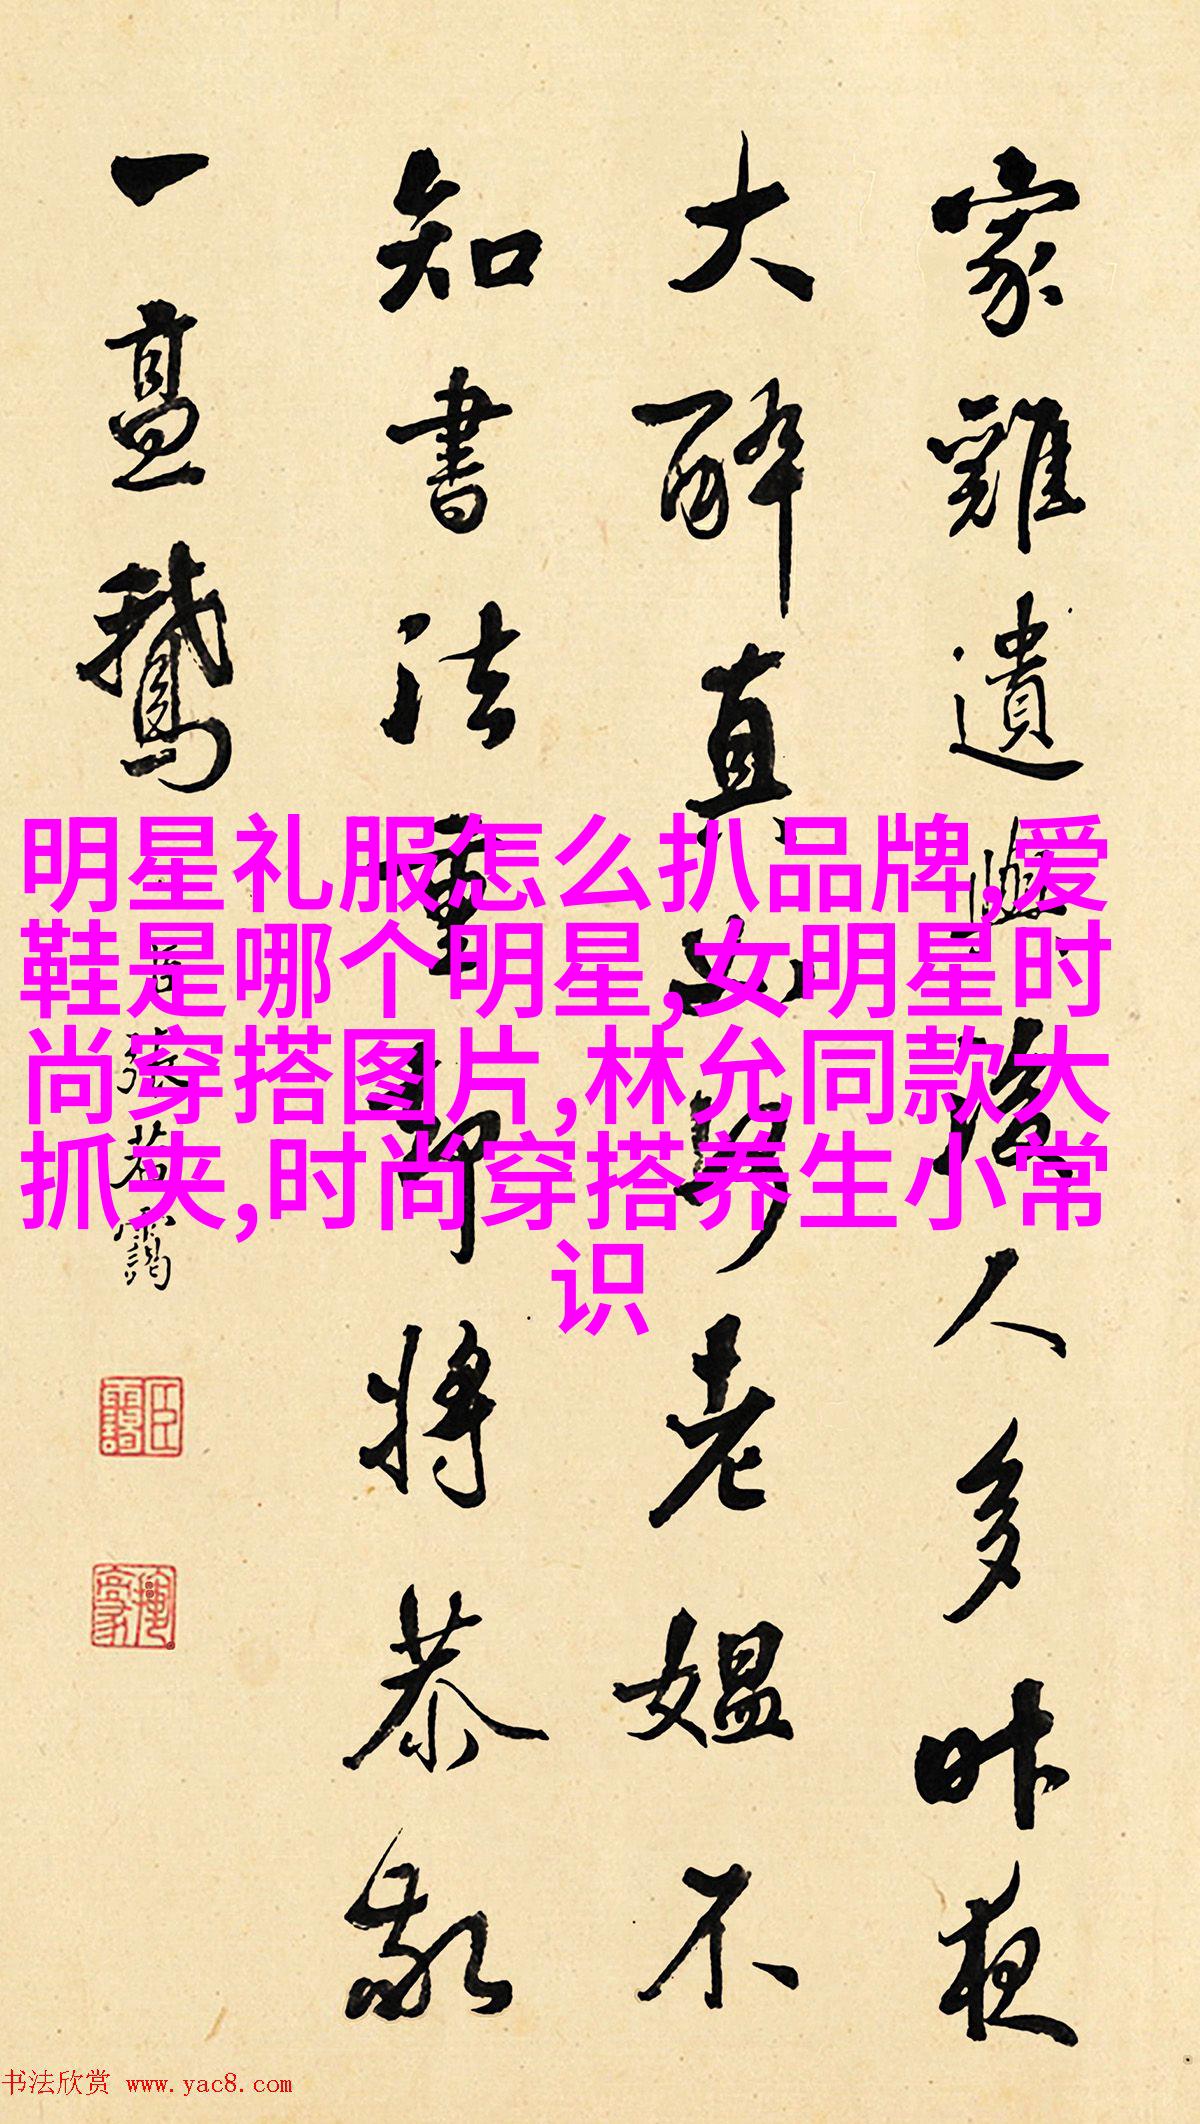 家雞遺
後人多昨夜
大醉
老媼不
知書法重
將恭敬
一
鵞
張若靄
明星礼服怎么扒品牌,爱
鞋是哪个明星,女明星时
尚穿搭图片,林允同款大
抓夹,时尚穿搭养生小常
识
书法欣赏 www.yac8.com